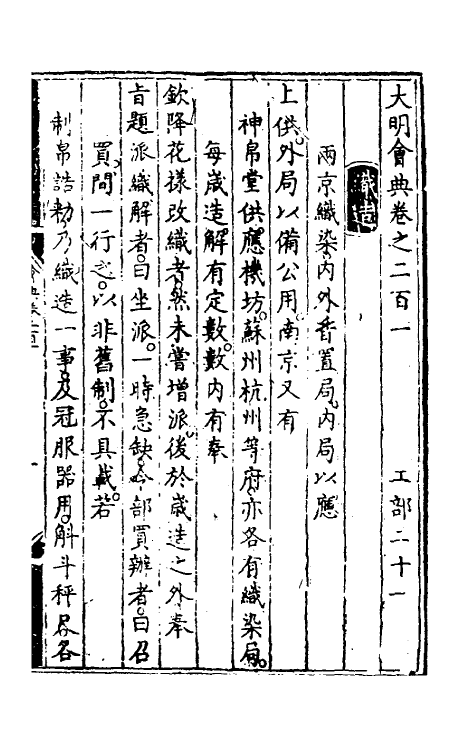 大明會典卷之二百一 工部二十一
織造
兩京織染。內外皆置局。內局以應
上供。外局以備公用。南京又有
神帛堂供應機坊。蘇州杭州等府。亦各有織染局。
每歲造解有定數。數內有奉
欽降花樣改織者。然未嘗增派。後於歲造之外奉
旨題派織解者。曰坐派。一時急缺。令部買辦者。曰召
買。間一行之。以非舊制。不具載。若
制帛誥勑。乃織造一事。及冠服器用。斛斗秤尺。各